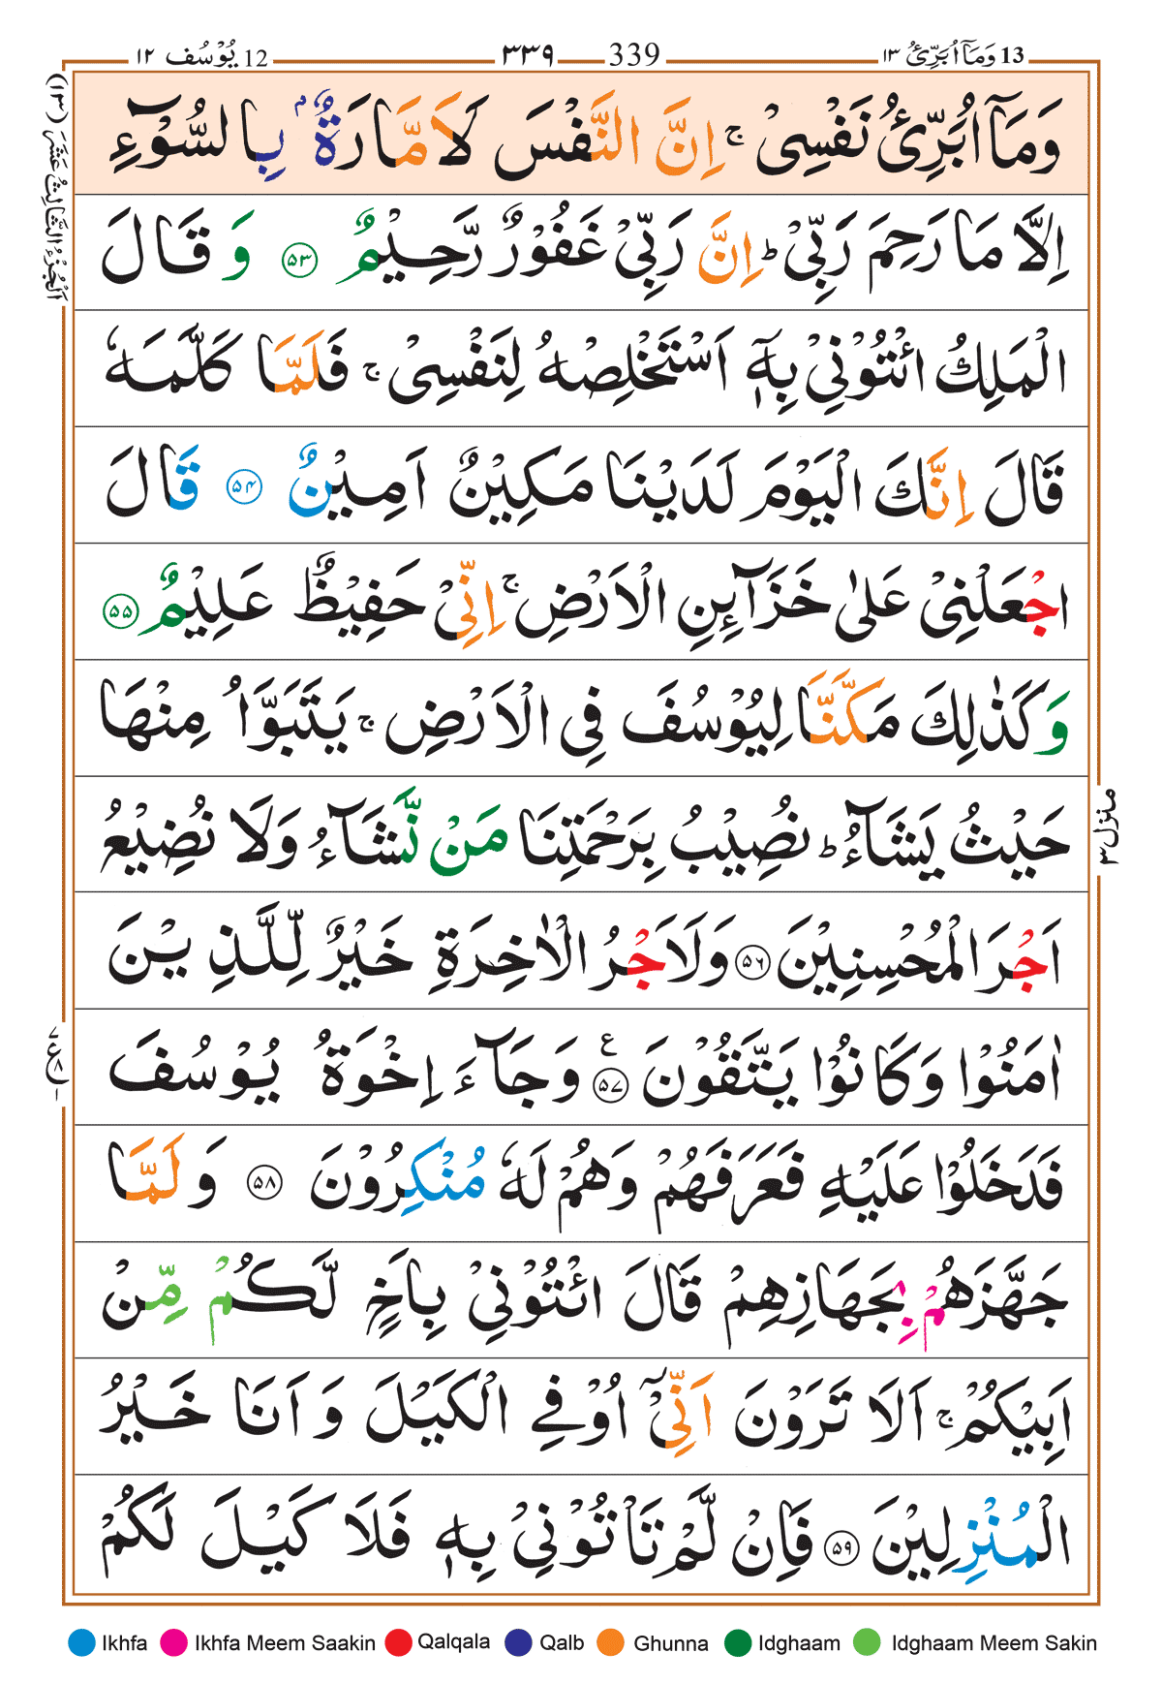 13 وَمَآ اُبَرِّئُ ١٣ 339 ٣٣٩ 12 يُوْسُف ١٢
اَلْجُزْءُ الثَّالِثُ عَشَرَ (١٣)
وَمَآ اُبَرِّئُ نَفْسِىْ ۚ اِنَّ النَّفْسَ لَاَمَّارَةٌۢ بِالسُّوْٓءِ
اِلَّا مَا رَحِمَ رَبِّىْ ؕ اِنَّ رَبِّىْ غَفُوْرٌ رَّحِيْمٌ ٥٣ وَ قَالَ
الْمَلِكُ ائْتُوْنِىْ بِهٖۤ اَسْتَخْلِصْهُ لِنَفْسِىْ ۚ فَلَمَّا كَلَّمَهٗ
قَالَ اِنَّكَ الْيَوْمَ لَدَيْنَا مَكِيْنٌ اَمِيْنٌ ٥٤ قَالَ
اجْعَلْنِىْ عَلٰى خَزَآئِنِ الْاَرْضِ ۚ اِنِّىْ حَفِيْظٌ عَلِيْمٌ ٥٥
وَكَذٰلِكَ مَكَّنَّا لِيُوْسُفَ فِى الْاَرْضِ ۚ يَتَبَوَّاُ مِنْهَا
حَيْثُ يَشَآءُ ؕ نُصِيْبُ بِرَحْمَتِنَا مَنْ نَّشَآءُ وَلَا نُضِيْعُ
اَجْرَ الْمُحْسِنِيْنَ ٥٦ وَلَاَجْرُ الْاٰخِرَةِ خَيْرٌ لِّلَّذِيْنَ
اٰمَنُوْا وَكَانُوْا يَتَّقُوْنَ ٥٧ ع وَجَآءَ اِخْوَةُ يُوْسُفَ
فَدَخَلُوْا عَلَيْهِ فَعَرَفَهُمْ وَهُمْ لَهٗ مُنْكِرُوْنَ ٥٨ وَلَمَّا
جَهَّزَهُمْ بِجَهَازِهِمْ قَالَ ائْتُوْنِىْ بِاَخٍ لَّكُمْ مِّنْ
اَبِيْكُمْ ۚ اَلَا تَرَوْنَ اَنِّىْۤ اُوْفِى الْكَيْلَ وَاَنَا خَيْرُ
الْمُنْزِلِيْنَ ٥٩ فَاِنْ لَّمْ تَاْتُوْنِىْ بِهٖ فَلَا كَيْلَ لَكُمْ
منزل ٣
Ikhfa Ikhfa Meem Saakin Qalqala Qalb Ghunna Idghaam Idghaam Meem Sakin